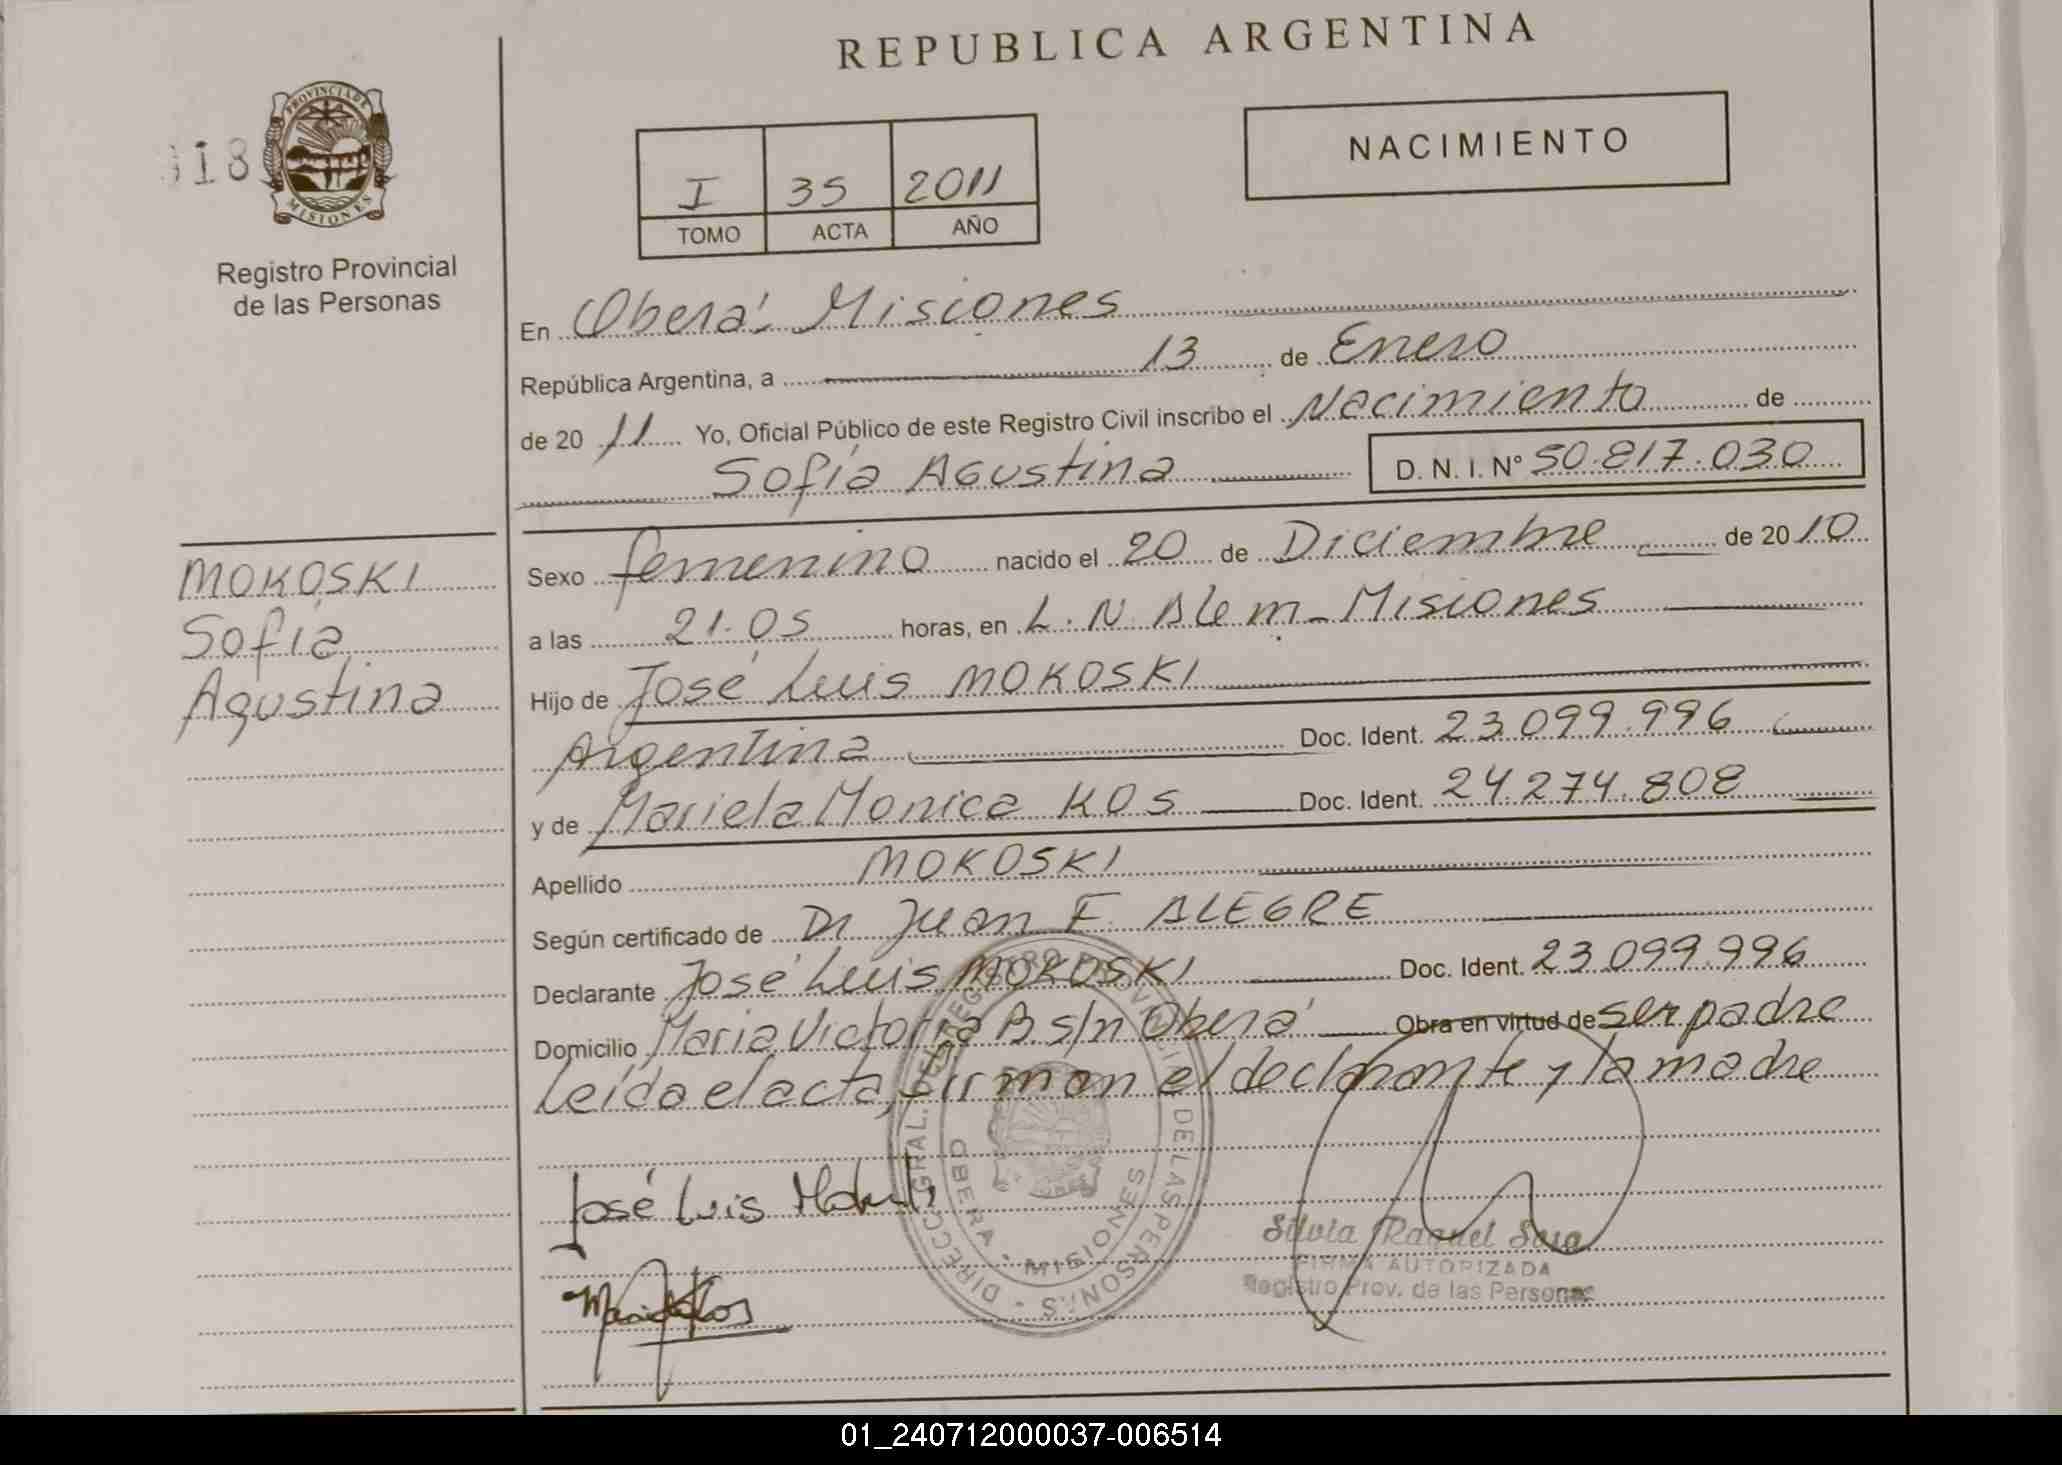 REPUBLICA ARGENTINA
18
PROVINCIA DE MISIONES
Registro Provincial
de las Personas
I 35 2011
TOMO ACTA AÑO
NACIMIENTO
En Oberá, Misiones
República Argentina, a 13 de Enero
de 2011 Yo, Oficial Público de este Registro Civil inscribo el Nacimiento de
Sofía Agustina D. N. I. N° 50.817.030
MOKOSKI
Sofía
Agustina
Sexo femenino nacido el 20 de Diciembre de 2010
a las 21.05 horas, en L. N. Alem - Misiones
Hijo de José Luis MOKOSKI
Argentina Doc. Ident. 23.099.996
y de Mariela Monica KOS Doc. Ident. 24.274.808
Apellido MOKOSKI
Según certificado de Dr Juan F. ALEGRE
Declarante José Luis MOKOSKI Doc. Ident. 23.099.996
Domicilio Maria Victoria B. s/n Oberá Obra en virtud de ser padre
Leída el acta, firman el declarante y la madre
José Luis Mokoski
DIRECC. GRAL. DEL REGISTRO PROVINCIAL DE LAS PERSONAS
OBERA - MISIONES
Silvia Raquel
FIRMA AUTORIZADA
Registro Prov. de las Personas
01_240712000037-006514